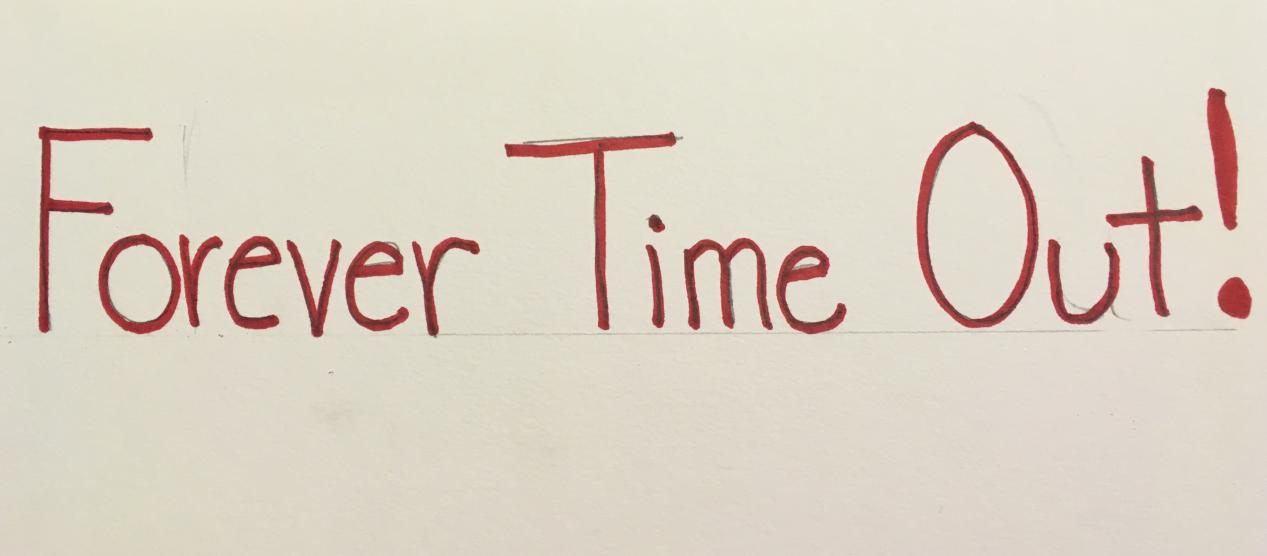 Forever Time Out!